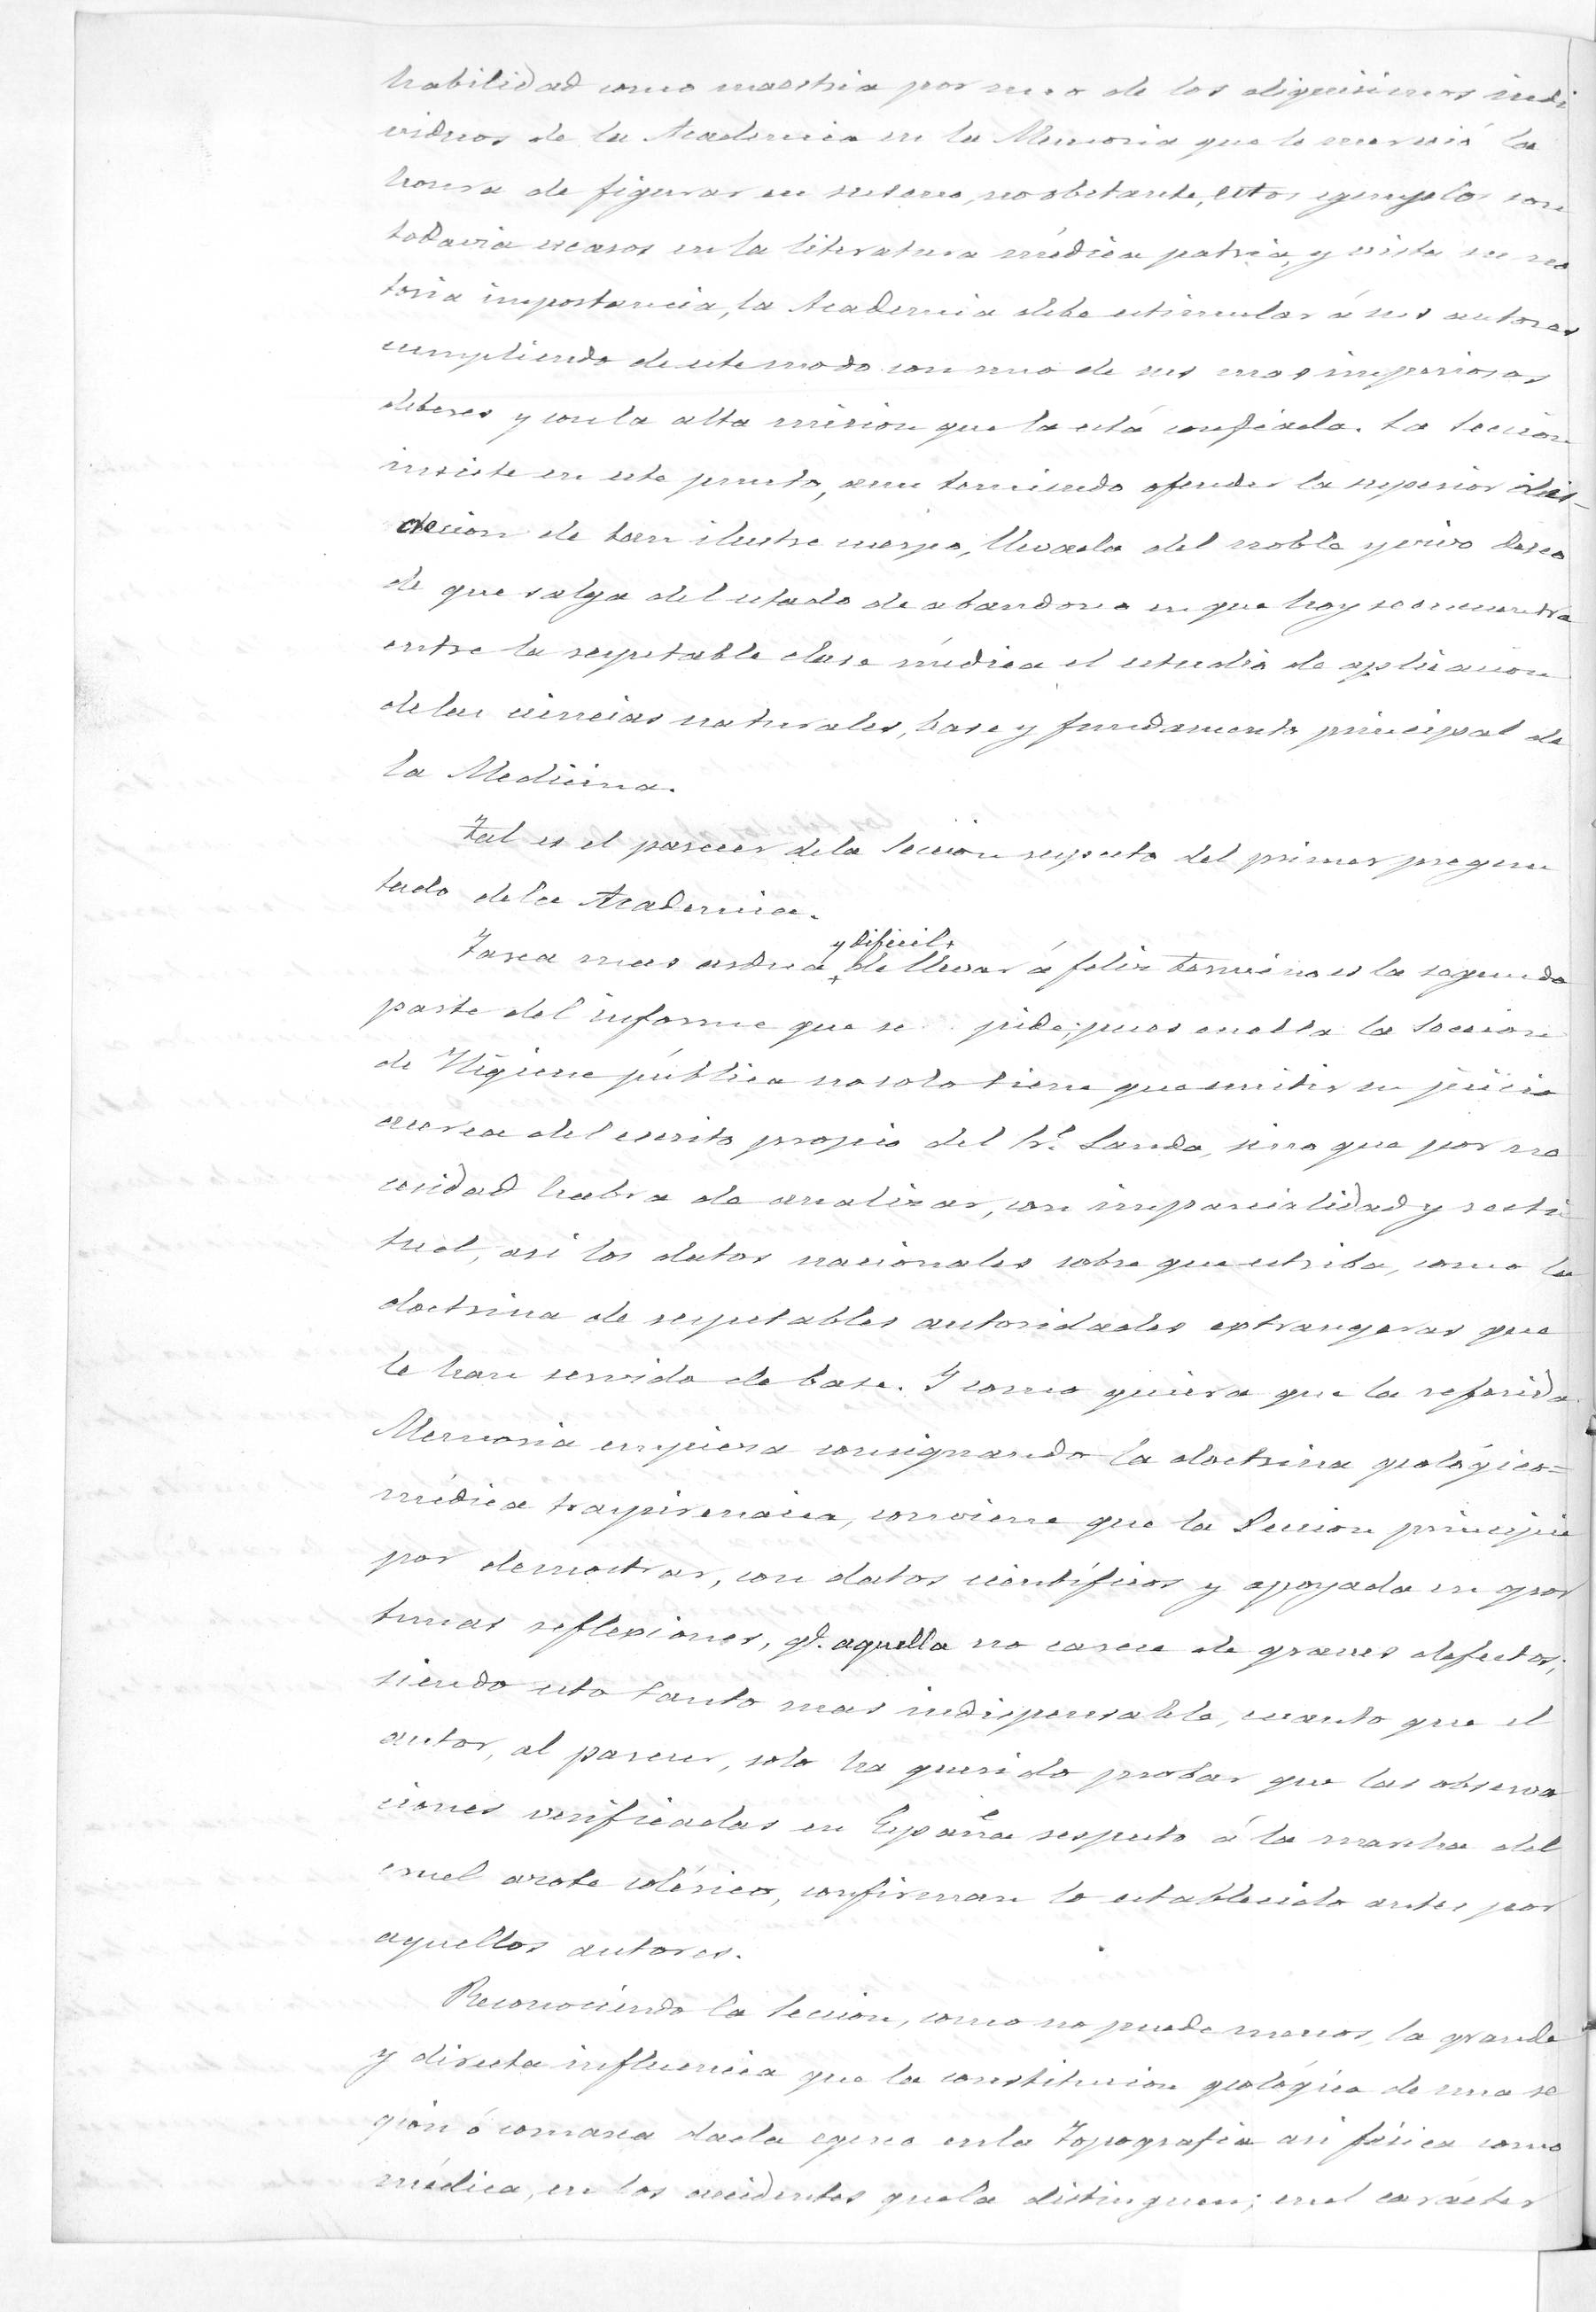 habilidad como maestria por uno de los dignisimos indi
viduos de la Academia en la Memoria que le mereció la
honra de figurar en su seno, no obstante, estos egemplos son
todavia escasos en la literatura médica patria, y vista su no
toria importancia, la Academia debe estimular á sus autores
cumpliendo de este modo con uno de sus mas imperiosos
deberes y con la alta mision que la está confiada. La Seccion
insiste en este punto, aun temiendo ofender la superior dis-
crecion de tan ilustre cuerpo, llevada del noble y vivo deseo
de que salga del estado de abandono en que hoy se encuentra
entre la respetable clase médica el estudio de aplicacion
de las ciencias naturales, base y fundamento principal de
la Medicina.
Tal es el parecer de la Seccion respecto del primer pregun
tado de la Academia.
Tarea mas ardua y dificil de llevar á feliz termino es la segunda
parte del informe que se pide; pues en ella la Seccion
de Higiene pública no solo tiene que emitir su juicio
acerca del escrito propio del Sr. Landa, sino que por ne
cesidad habra de analizar, con imparcialidad y recti
tud, asi los datos nacionales sobre que estriba, como la
doctrina de respetables autoridades extrangeras que
le han servido de base. Y como quiera que la referida
Memoria empieza consignando la doctrina geológico=
médica traspirenaica, conviene que la Seccion principie
por demostrar, con datos científicos y apoyada en opor
tunas reflexiones, qe. aquella no carece de graves defectos;
siendo esto tanto mas indispensable, cuanto que el
autor, al parecer, solo ha querido probar que las observa
ciones verificadas en España respecto á la marcha del
cruel azote colérico, confirman lo establecido antes por
aquellos autores.
Reconociendo la Seccion, como no puede menos, la grande
y directa influencia que la constitucion geológica de una re
gion ó comarca dada egerce en la Topografia asi física como
médica, en los accidentes que la distinguen; en el carácter